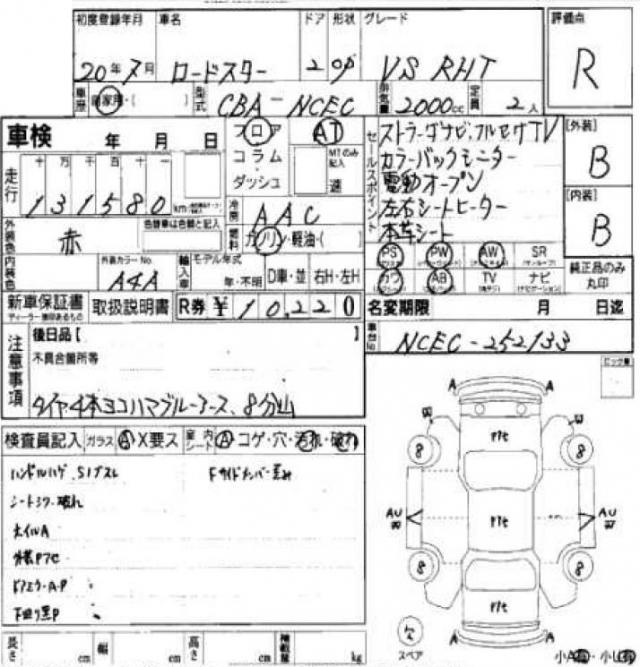 初度登録年月 車名 ドア 形状 グレード 評価点
20年7月 ロードスター 2 OP VS RHT R
車歴 自家用・( ) 型式 CBA-NCEC 排気量 2000cc 定員 2人
車検 年 月 日 フロア AT セールスポイント ストラーダナビ・フルセグTV [外装]
コラム MTのみ記入 カラーバックモニター B
走行 十 万 千 百 十 一 ダッシュ 速 電動オープン
131580km 冷房 AAC 左右シートヒーター [内装]
外装色 赤 色替車は色替と記入 燃料 ガソリン・軽油・( ) 本革シート B
PS PW AW SR 純正品のみ丸印
内装色 外装カラーNo. A4A 輸入車 モデル年式 年・不明 D車・並 右H・左H カワ AB TV ナビ
新車保証書 取扱説明書 R券 ¥10,220 名変期限 月 日迄
ディーラー捺印あるもの
注意事項 後日品[ ] 車台No. NCEC-252133
不具合箇所等
タイヤ4本ヨコハマブルーアース、8分山
検査員記入 ガラス A X要ス 室内シート A コゲ・穴・汚れ・破れ
ハンドルハゲ、S1ブスレ Fサイドメンバー歪み
シートシワ・破れ
ホイルA
外装P7セ
ドアミラーA・P
下回り黒P
A A
W W
8 P7セ 8
AU P7セ AU
8 P7セ 8
スペア A A
長さ cm 幅 cm 高さ cm 積載量 kg